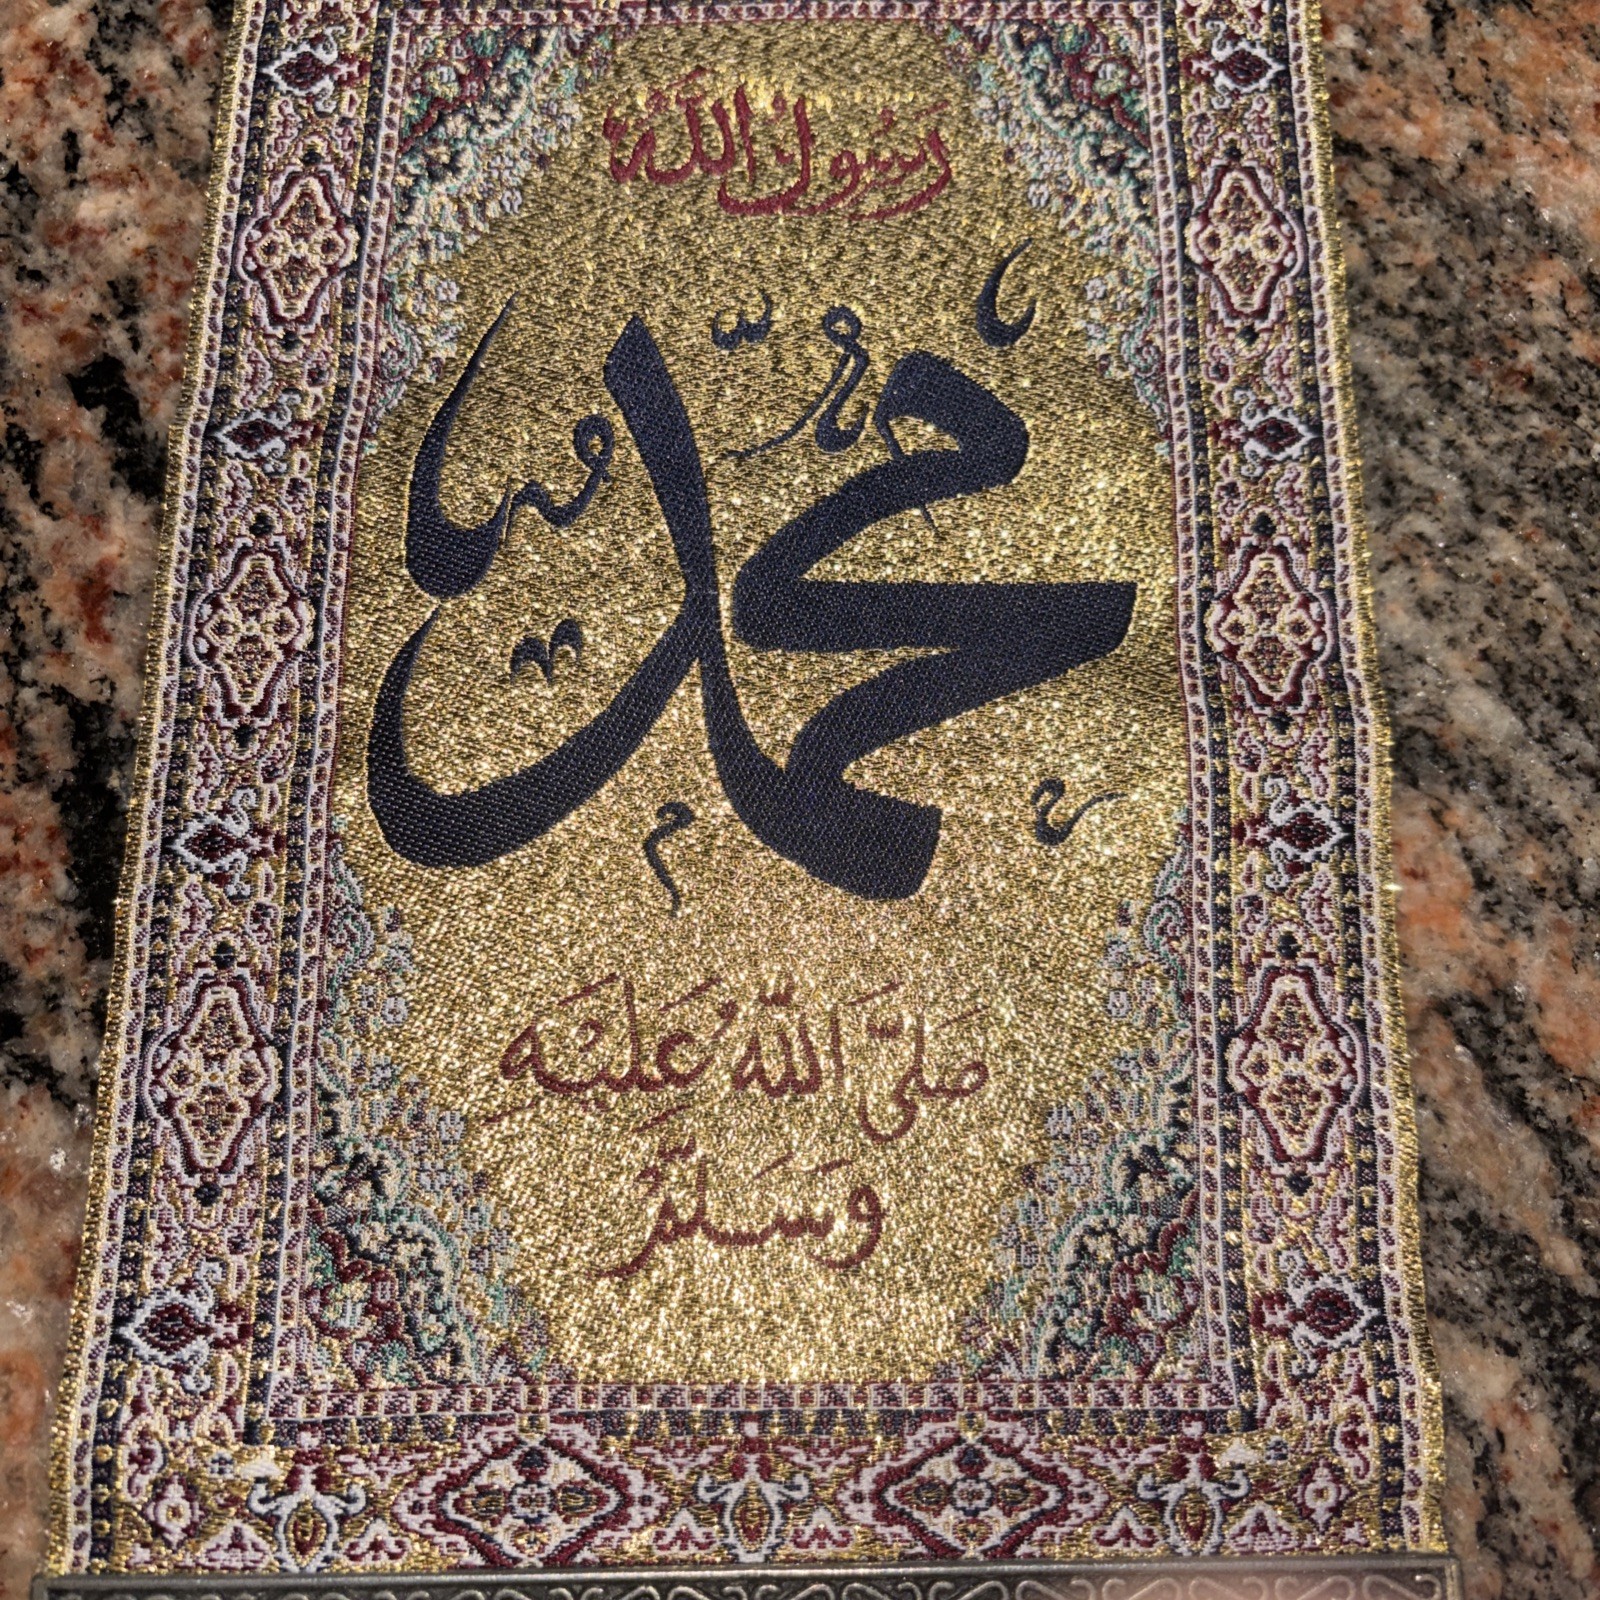 رَسُولُ اللَّهِ
مُحَمَّدٌ
صَلَّى اللّٰهُ عَلَيْهِ
وَسَلَّمَ